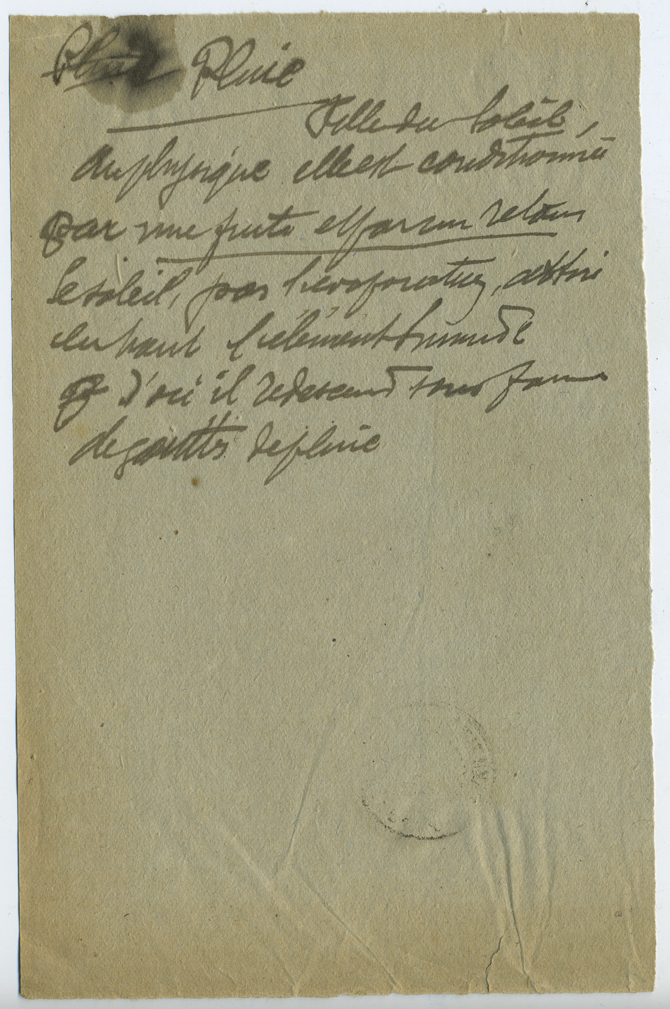 Pluie Pluie
Fille du Soleil,
Au physique elle est conditionnée
par une fuite et par un retour
le soleil, par l'évaporation, attire
en haut l'élément humide
d'où il redescend sous forme
de gouttes de pluie